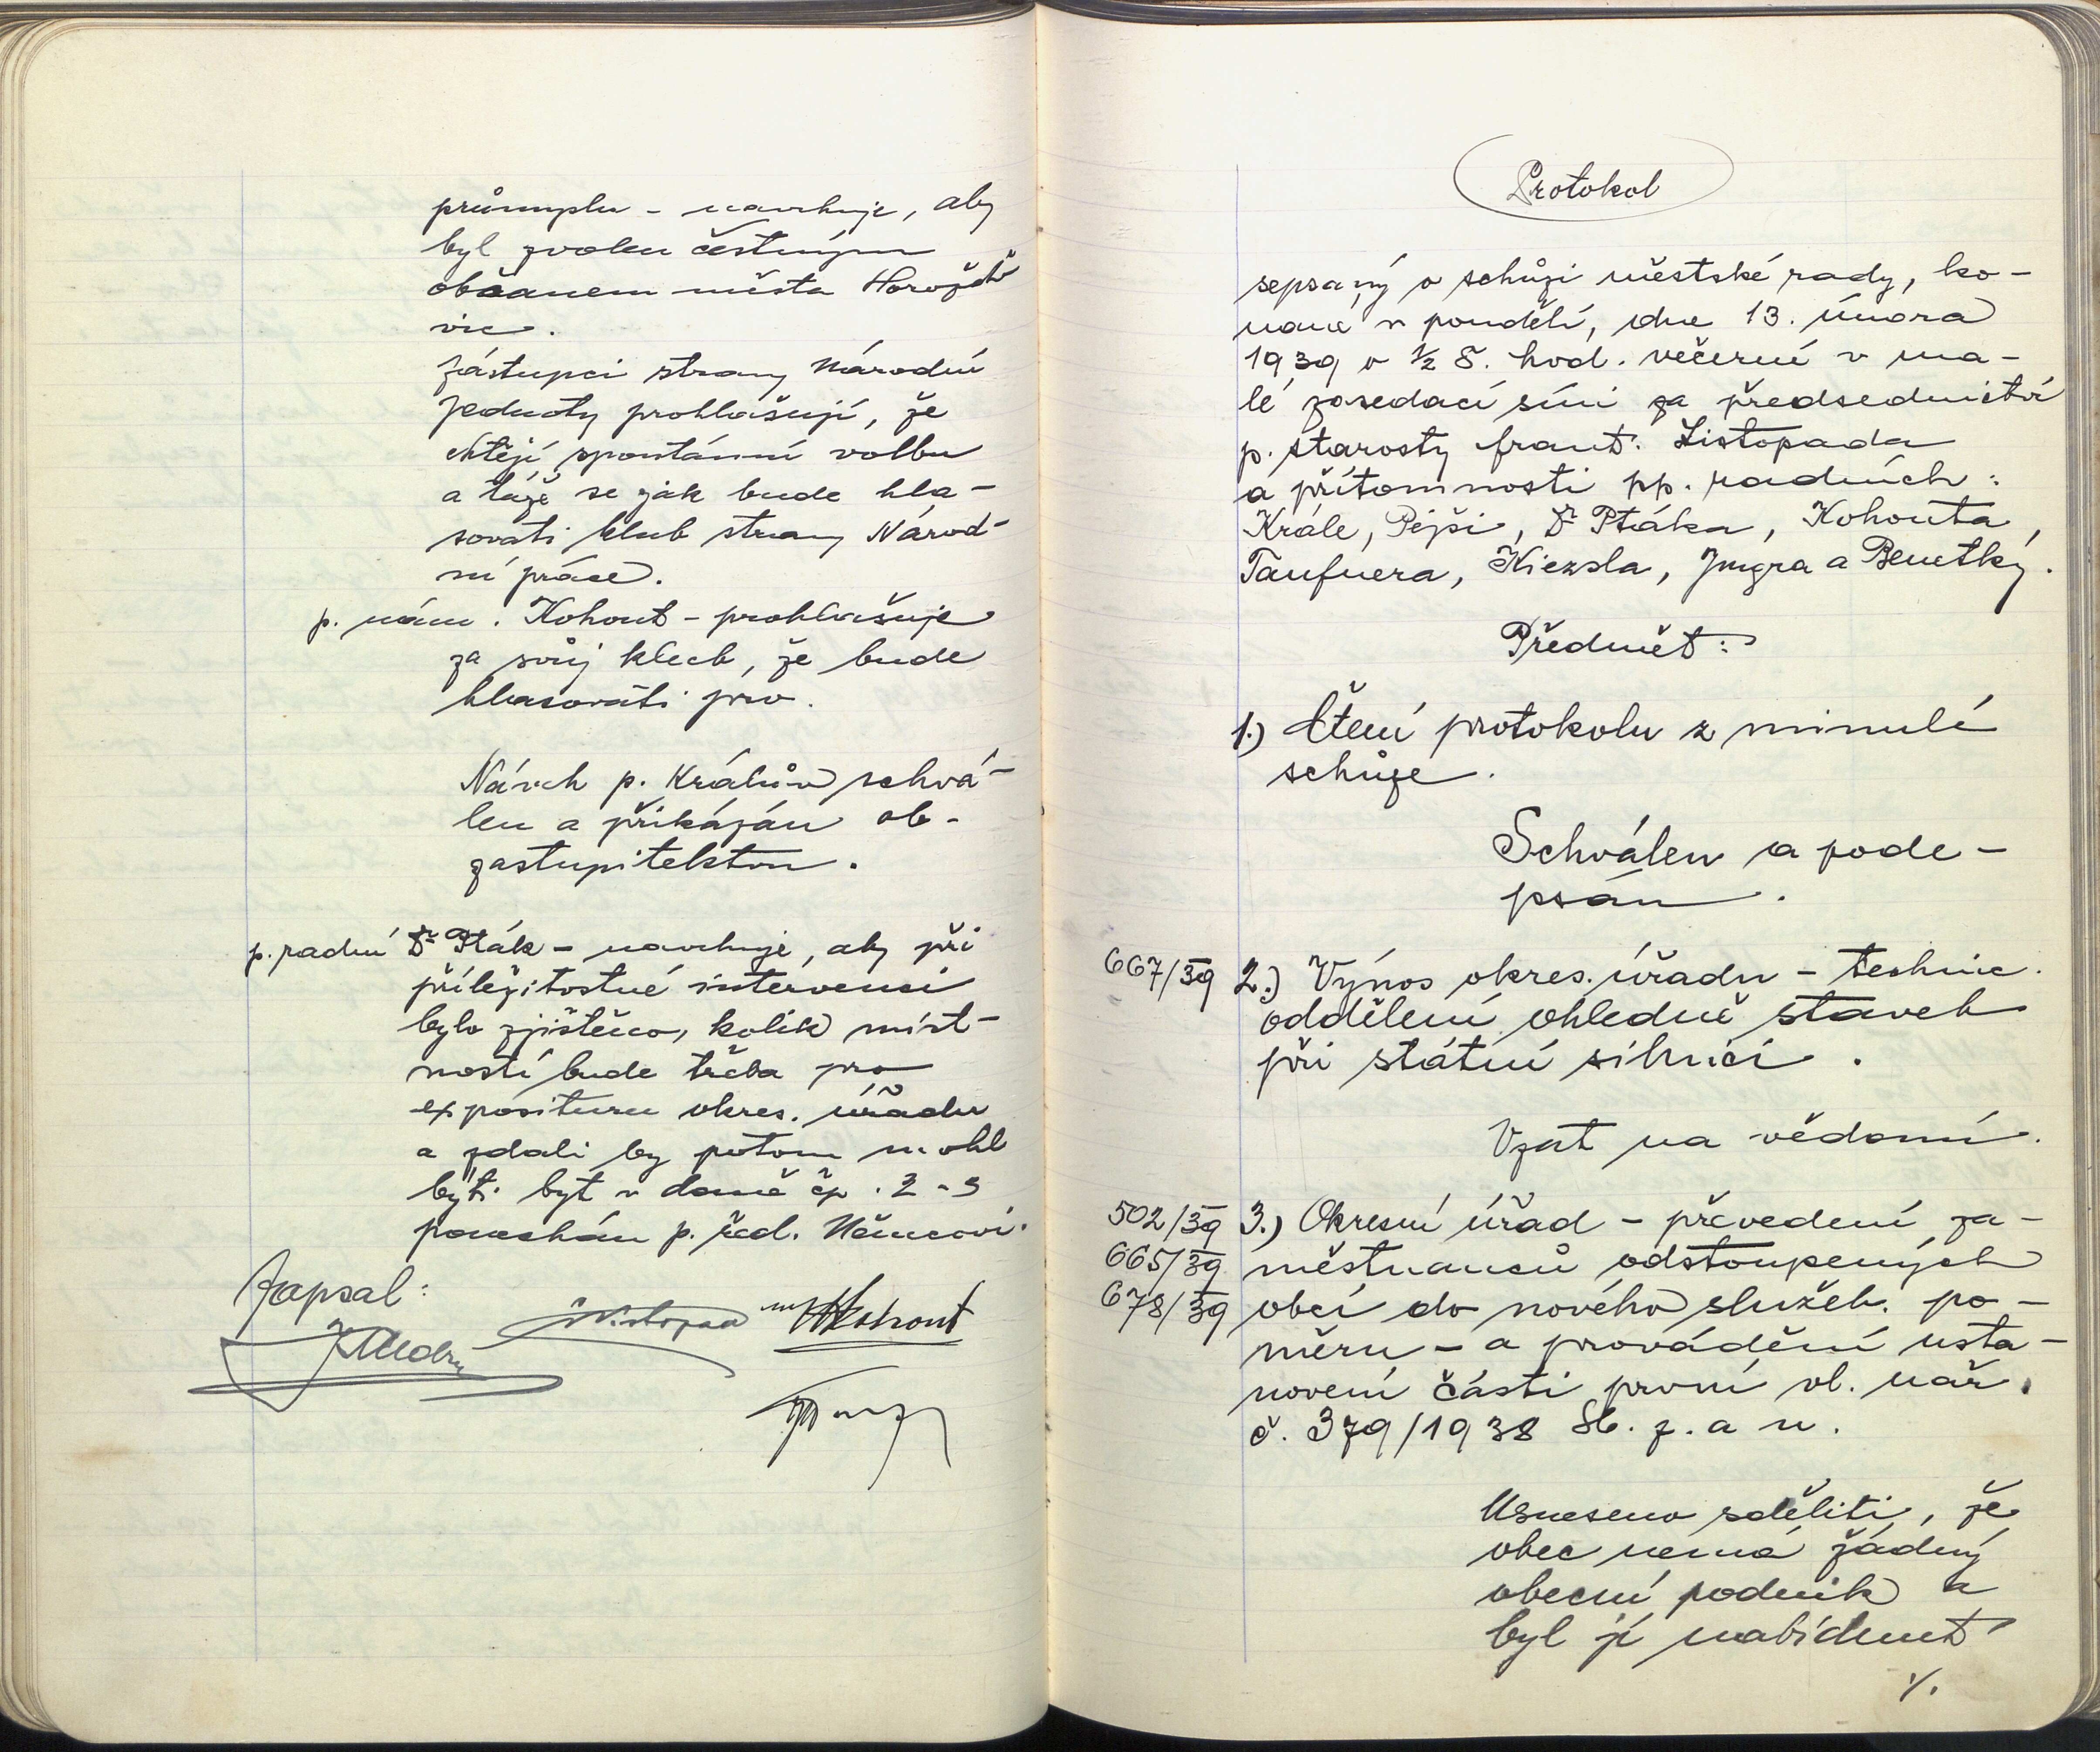 průmyslu - navrhuje, aby
byl zvolen čestným
občanem města Horažďo
vic.
Zástupci strany Národní
Jednoty prohlašují, že
chtějí spontánní volbu
a táže se jak bude hla-
sovati klub strany Národ-
ní práce.
p. nám. Kohout - prohlašuje
za svůj klub, že bude
hlasovati pro.
Návrh p. Králův schvá-
len a přikázán ob.
zastupitelstvu.
p. radní Dr Pták - navrhuje, aby při
příležitostné intervenci
bylo zjištěno, kolik míst-
ností bude třeba pro
exposituru okres. úřadu
a zdali by potom mohl
býti byt v domě čp. 2-3
ponechán p. řed. Němcovi.
Zapsal:
Listopad Kohout
Protokol
sepsaný o schůzi městské rady, ko-
nané v pondělí, dne 13. února
1939 o ½ 8. hod. večerní v ma-
lé zasedací síni za předsednictví
p. starosty Frant. Listopada
a přítomnosti pp. radních:
Krále, Pejši, Dr Ptáka, Kohouta,
Taufnera, Kiezsla, Jngra a Benetky.
Předmět:
1.) Čtení protokolu z minulé
schůze.
Schválen a pode-
psán.
667/39 2.) Výnos okres. úřadu - technic.
oddělení ohledně staveb
při státní silnici.
Vzat na vědomí.
502/39 3.) Okresní úřad - převedení za-
665/39 městnanců odstoupených
678/39 obcí do nového služeb. po-
měru - a provádění usta-
novení části první vl. nař.
č. 379/1938 Sb. z. a n.
Usneseno sděliti, že
obec nemá žádný
obecní podnik a
byl jí nabídnut
./.